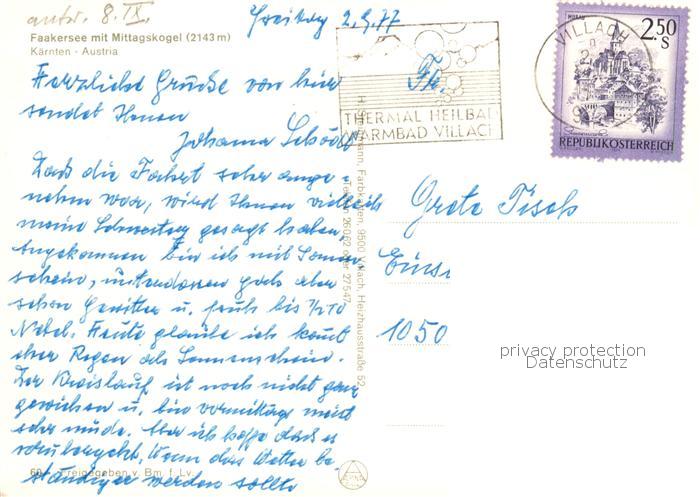 antw. 8. IX.
Freitag 2.9.77
Faakersee mit Mittagskogel (2143 m)
Kärnten - Austria
Herzliche Grüße von hier
sendet Ihnen
Johanna
Daß die Fahrt sehr ange-
nehm war, wird Ihnen vielleicht
meine Schwester gesagt haben.
Angekommen bin ich mit Sonnen-
schein, unterdessen gab's aber
schon Gewitter u. früh bis 1/2 10
Nebel. Heute glaube ich kommt
eher Regen als Sonnenschein.
Der Kreislauf ist noch nicht ganz
gewichen u. bin vormittag meist
sehr müde. Aber ich hoffe daß es
vorübergeht, wenn das Wetter be-
ständiger werden sollte
Freigegeben v. Bm. f. Lv.
Farbkarten, 9500 Villach, Heizhausstraße 52,
26062 oder 27547
THERMAL HEILBAD
WARMBAD VILLACH
VILLACH
2.50
S
REPUBLIK ÖSTERREICH
Fr.
Grete
1050
privacy protection
Datenschutz